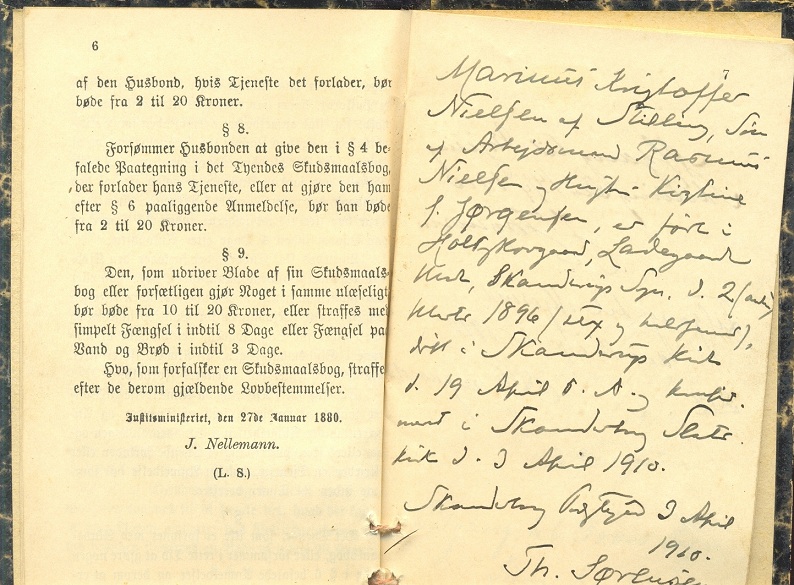 6
af den Husbond, hvis Tjeneste det forlader, bør
bøde fra 2 til 20 Kroner.
§ 8.
Forsømmer Husbonden at give den i § 4 be-
falede Paategning i det Tyendes Skudsmaalsbog,
der forlader hans Tjeneste, eller at gjøre den ham
efter § 6 paaliggende Anmeldelse, bør han bøde
fra 2 til 20 Kroner.
§ 9.
Den, som udriver Blade af sin Skudsmaals-
bog eller forsætligen gjør Noget i samme ulæseligt
bør bøde fra 10 til 20 Kroner, eller straffes med
simpelt Fængsel i indtil 8 Dage eller Fængsel paa
Vand og Brød i indtil 3 Dage.
Hvo, som forfalsker en Skudsmaalsbog, straffes
efter de derom gjældende Lovbestemmelser.
Justitsministeriet, den 27de Januar 1880.
J. Nellemann.
(L. S.)
7
Marinus Kristoffer
Nielsen af Stilling, Søn
af Arbejdsmand Rasmus
Nielsen og Hustru Kirstine
f. Jørgensen, er født i
Ladegaard
Skanderup Sogn, d. 2
Marts 1896
døbt i Skanderup Kirke
d. 19 April s. A. og konfir-
meret i Skanderborg Slots-
kirke d. 3 April 1910.
Skanderborg 3 April
1910.
Th. Sørensen